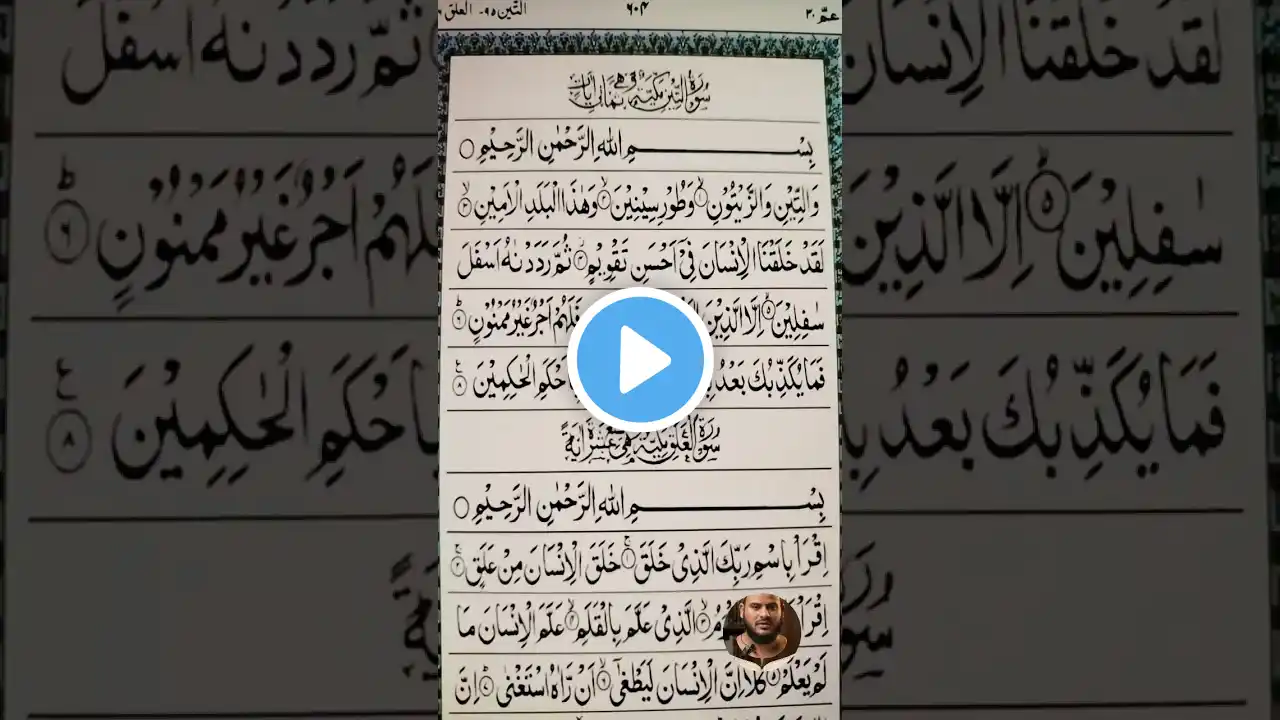 عمّ ۳۰ ۶۰۴ التین ۹۵- العلق
سُوْرَةُ التِّيْنِ مَكِّيَّةٌ وَّهِيَ ثَمَانِيْ اٰيَاتٍ
بِسْمِ اللّٰهِ الرَّحْمٰنِ الرَّحِيْمِ
وَالتِّيْنِ وَالزَّيْتُوْنِ ۙ۱ وَطُوْرِ سِيْنِيْنَ ۙ۲ وَهٰذَا الْبَلَدِ الْاَمِيْنِ ۙ۳
لَقَدْ خَلَقْنَا الْاِنْسَانَ فِيْٓ اَحْسَنِ تَقْوِيْمٍ ۴ ثُمَّ رَدَدْنٰهُ اَسْفَلَ
سٰفِلِيْنَ ۙ۵ اِلَّا الَّذِيْنَ فَلَهُمْ اَجْرٌ غَيْرُ مَمْنُوْنٍ ۶ؕ
فَمَا يُكَذِّبُكَ بَعْدُ بِاَحْكَمِ الْحٰكِمِيْنَ ۸
بِسْمِ اللّٰهِ الرَّحْمٰنِ الرَّحِيْمِ
اِقْرَاْ بِاسْمِ رَبِّكَ الَّذِيْ خَلَقَ ۚ۱ خَلَقَ الْاِنْسَانَ مِنْ عَلَقٍ ۚ۲
اِقْرَاْ الَّذِيْ عَلَّمَ بِالْقَلَمِ ۙ۴ عَلَّمَ الْاِنْسَانَ مَا
لَمْ يَعْلَمْ ۵ كَلَّا اِنَّ الْاِنْسَانَ لَيَطْغٰىٓ ۙ۶ اَنْ رَّاٰهُ اسْتَغْنٰى ۷ؕ اِنَّ